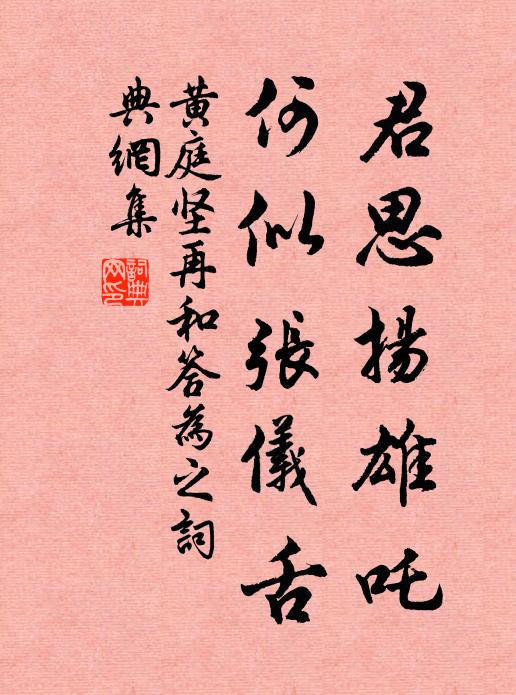 君思揚雄吒
何似張儀舌
黄庭坚再和答為之詞
典網集
詞典
网印